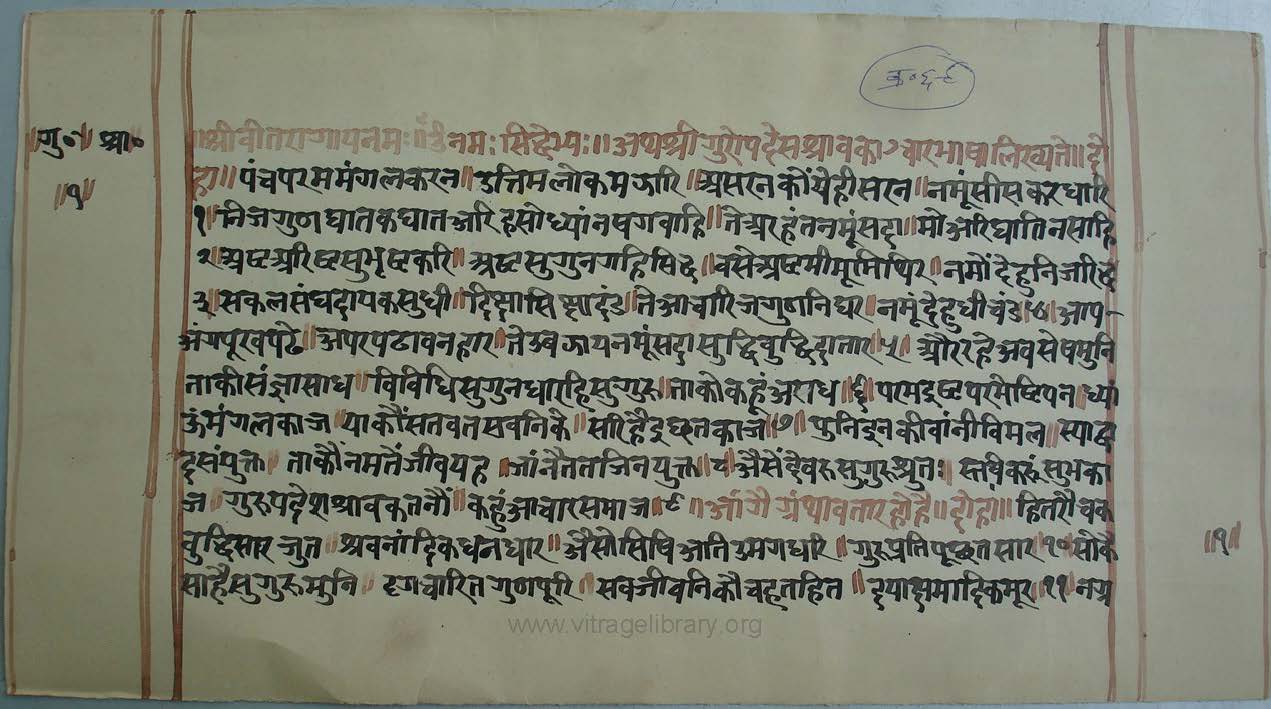 क्र॰ ६९
॥गु॰॥ श्रा॰
॥१॥
॥श्रीवीतरागायनमः॥ॐनमःसिद्धेभ्यः॥अथश्रीगुरोपदेसश्रावकाचारभाषालिख्यते॥दो
हा॥पंचपरममंगलकरन॥उत्तिमलोकमऊारि॥असरनकौंयेहीसरन॥नमूंसीसकरधारि
१॥निजगुणघातकघातअरि॥हसोध्यांनषगवाहि॥तेअरहंतनमूंसदा॥मोअरिघातिनसाहि
२॥अष्टअरिष्टसुभृष्टकरि॥अष्टसुगुनगहिसिद्ध॥वसेअष्टमीभूमिथिर॥नमोंदेहुनिजरिद्ध
३॥सकलसंघदायकसुधी॥दिक्षासिक्षादंड॥तेआचारिजगुणनिधर॥नमूंदेहुधीचंड॥४॥आप-
अंगपूरवपढै॥अपरपढावनहार॥तेउवऊायनमूंसदा॥सुद्धिबुद्धिदातार॥५॥औररहेअवसेषमुनि
ताकीसंज्ञासाध॥विविधिसुगुनधारहिसुगुरु॥ताकोकहूंअराध॥६॥परमइष्टपरमेष्टिपन॥ध्या
ऊंमंगलकाज॥याकौंसतवतसवनिके॥सरिहैइछतकाज॥७॥पुनिइनकीवांनीविमल॥स्याद्वा
दसंयुक्त॥ताकौंनमतैंजीवयह॥जांनैततजिनयुक्त॥८॥औसेंदेवरुसुगुरुश्रुत॥स्तविकरूंसुभका
ज॥गुरुपदेशश्रावकतनौं॥कहूंआचारसमाज॥९॥आगैग्रंथावतारहोहै॥दोहा॥हितरौचक
बुद्धिसारजुत॥श्रवनांदिकधनधार॥औसोसिषिअतिउमगधारि॥गुरुप्रतिपूछतसार॥१०॥सोकै
साहैसुगुरुमुनि॥दृगचारितगुणपूरि॥सवजीवनिकौचहतहित॥दयाक्षमादिकमूर॥११॥नग्र
॥१॥
www.vitragelibrary.org